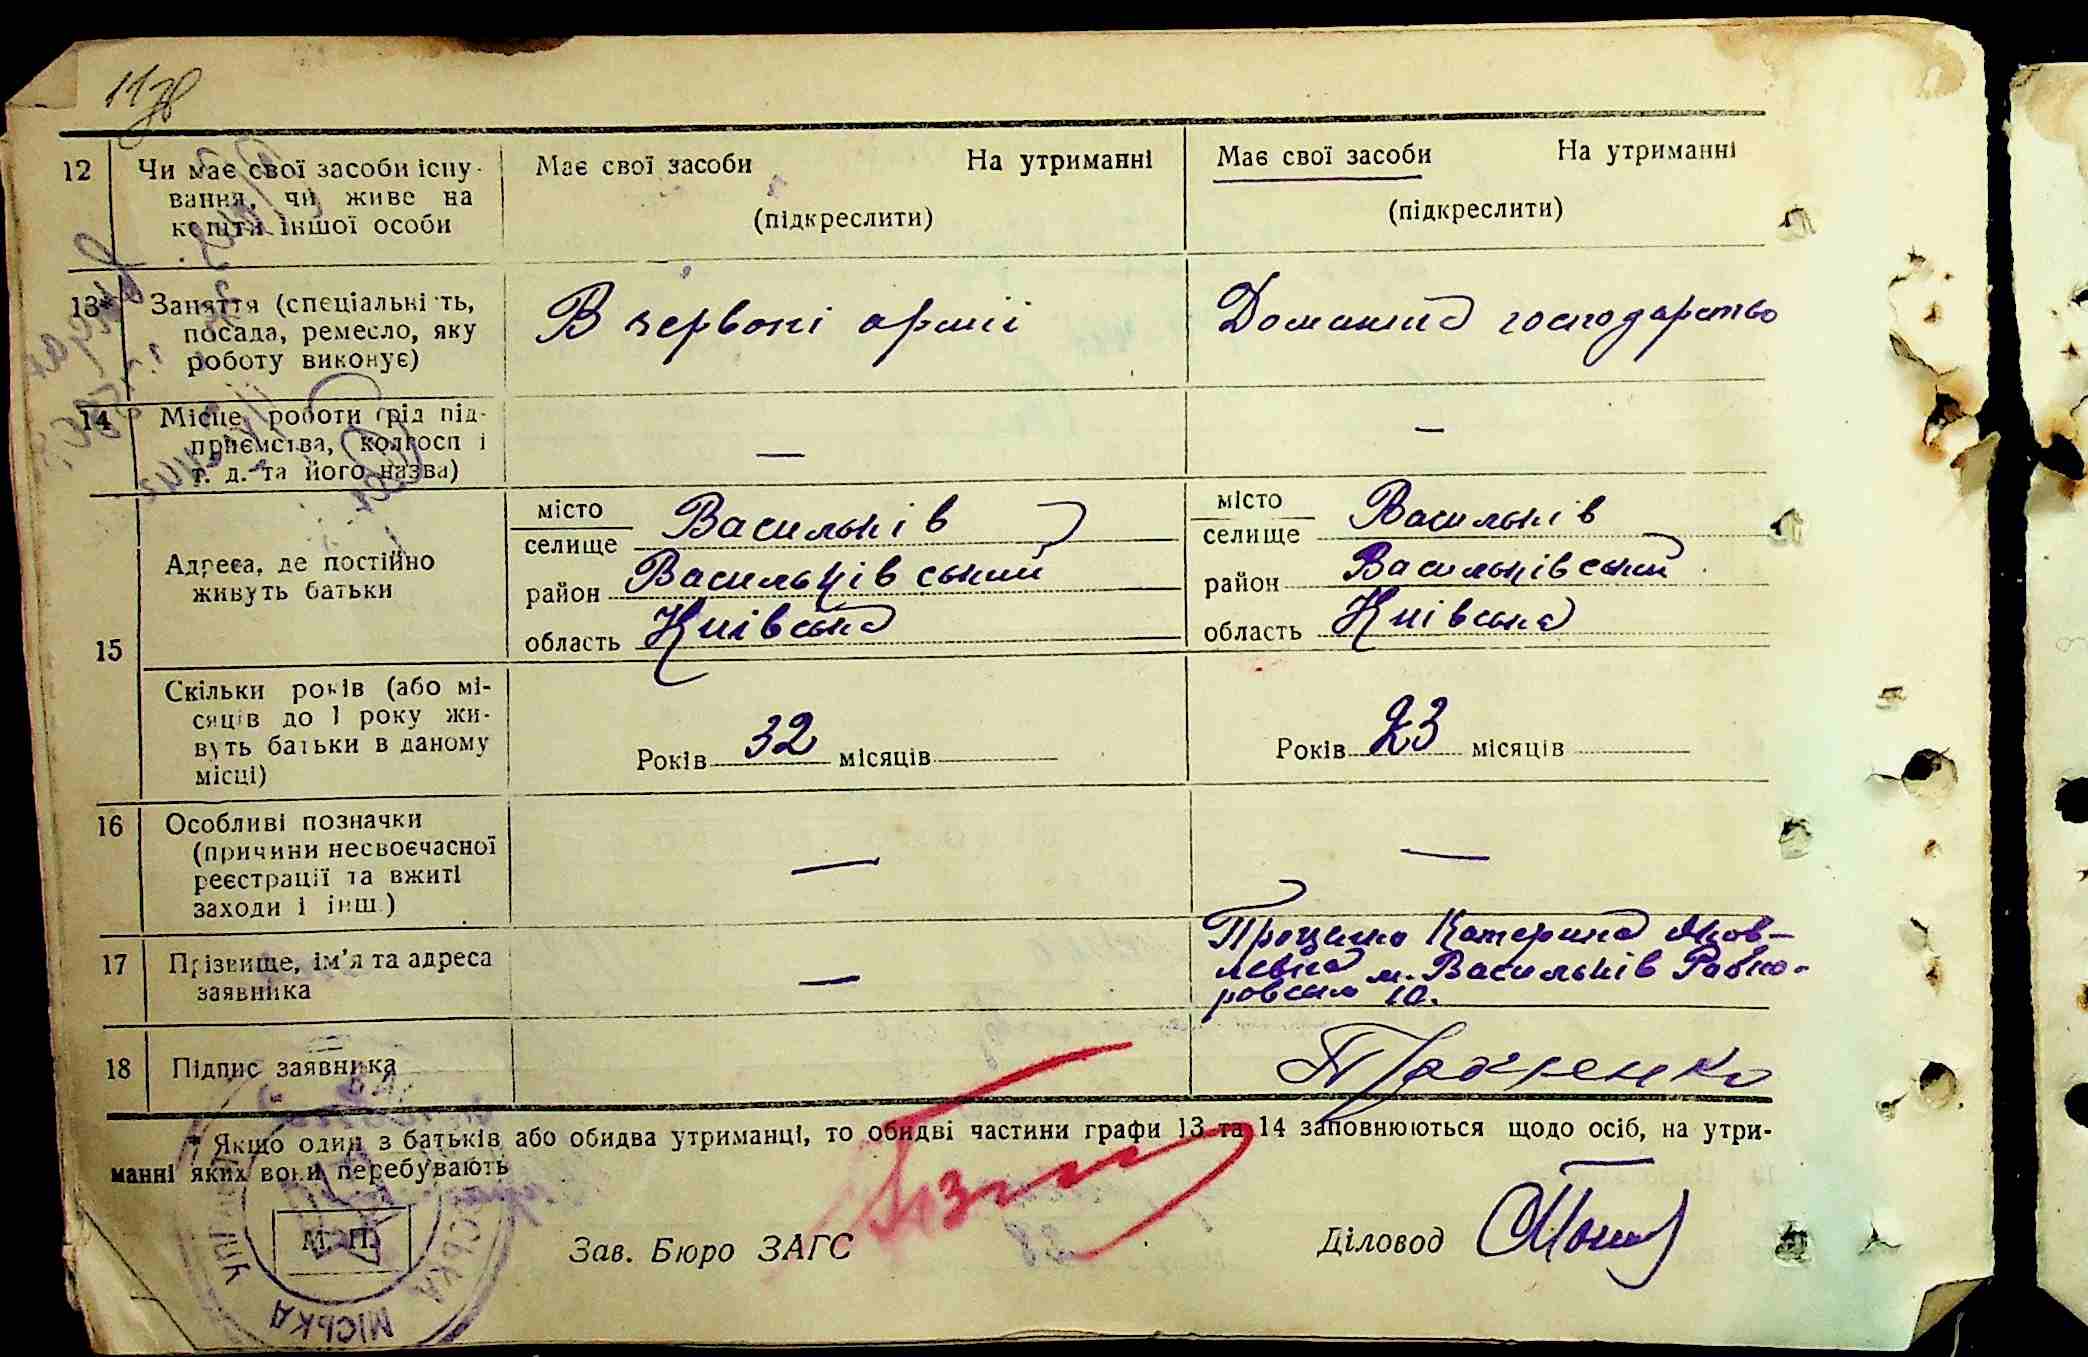 12 Чи має свої засоби існу- Має свої засоби На утриманні Має свої засоби На утриманні
вання, чи живе на (підкреслити) (підкреслити)
кошти іншої особи
13* Заняття (спеціальність, В червоні армії Домашнє господарство
посада, ремесло, яку
роботу виконує)
14 Місце роботи (рід під- — —
приємства, колгосп і
т. д. та його назва)
15 Адреса, де постійно живуть батьки
місто селище Васильків місто селище Васильків
район Васильківський район Васильківський
область Київська область Київська
Скільки років (або мі-
сяців до 1 року жи-
вуть батьки в даному Років 32 місяців Років 23 місяців
місці)
16 Особливі позначки — —
(причини несвоєчасної
реєстрації та вжиті
заходи і інш.)
17 Прізвище, ім'я та адреса — Катерина Яков-
заявника левна м. Васильків
10.
18 Підпис заявника
* Якщо один з батьків або обидва утриманці, то обидві частини графи 13 та 14 заповнюються щодо осіб, на утри-
манні яких вони перебувають
М. П. Зав. Бюро ЗАГС Діловод
МІСЬКА